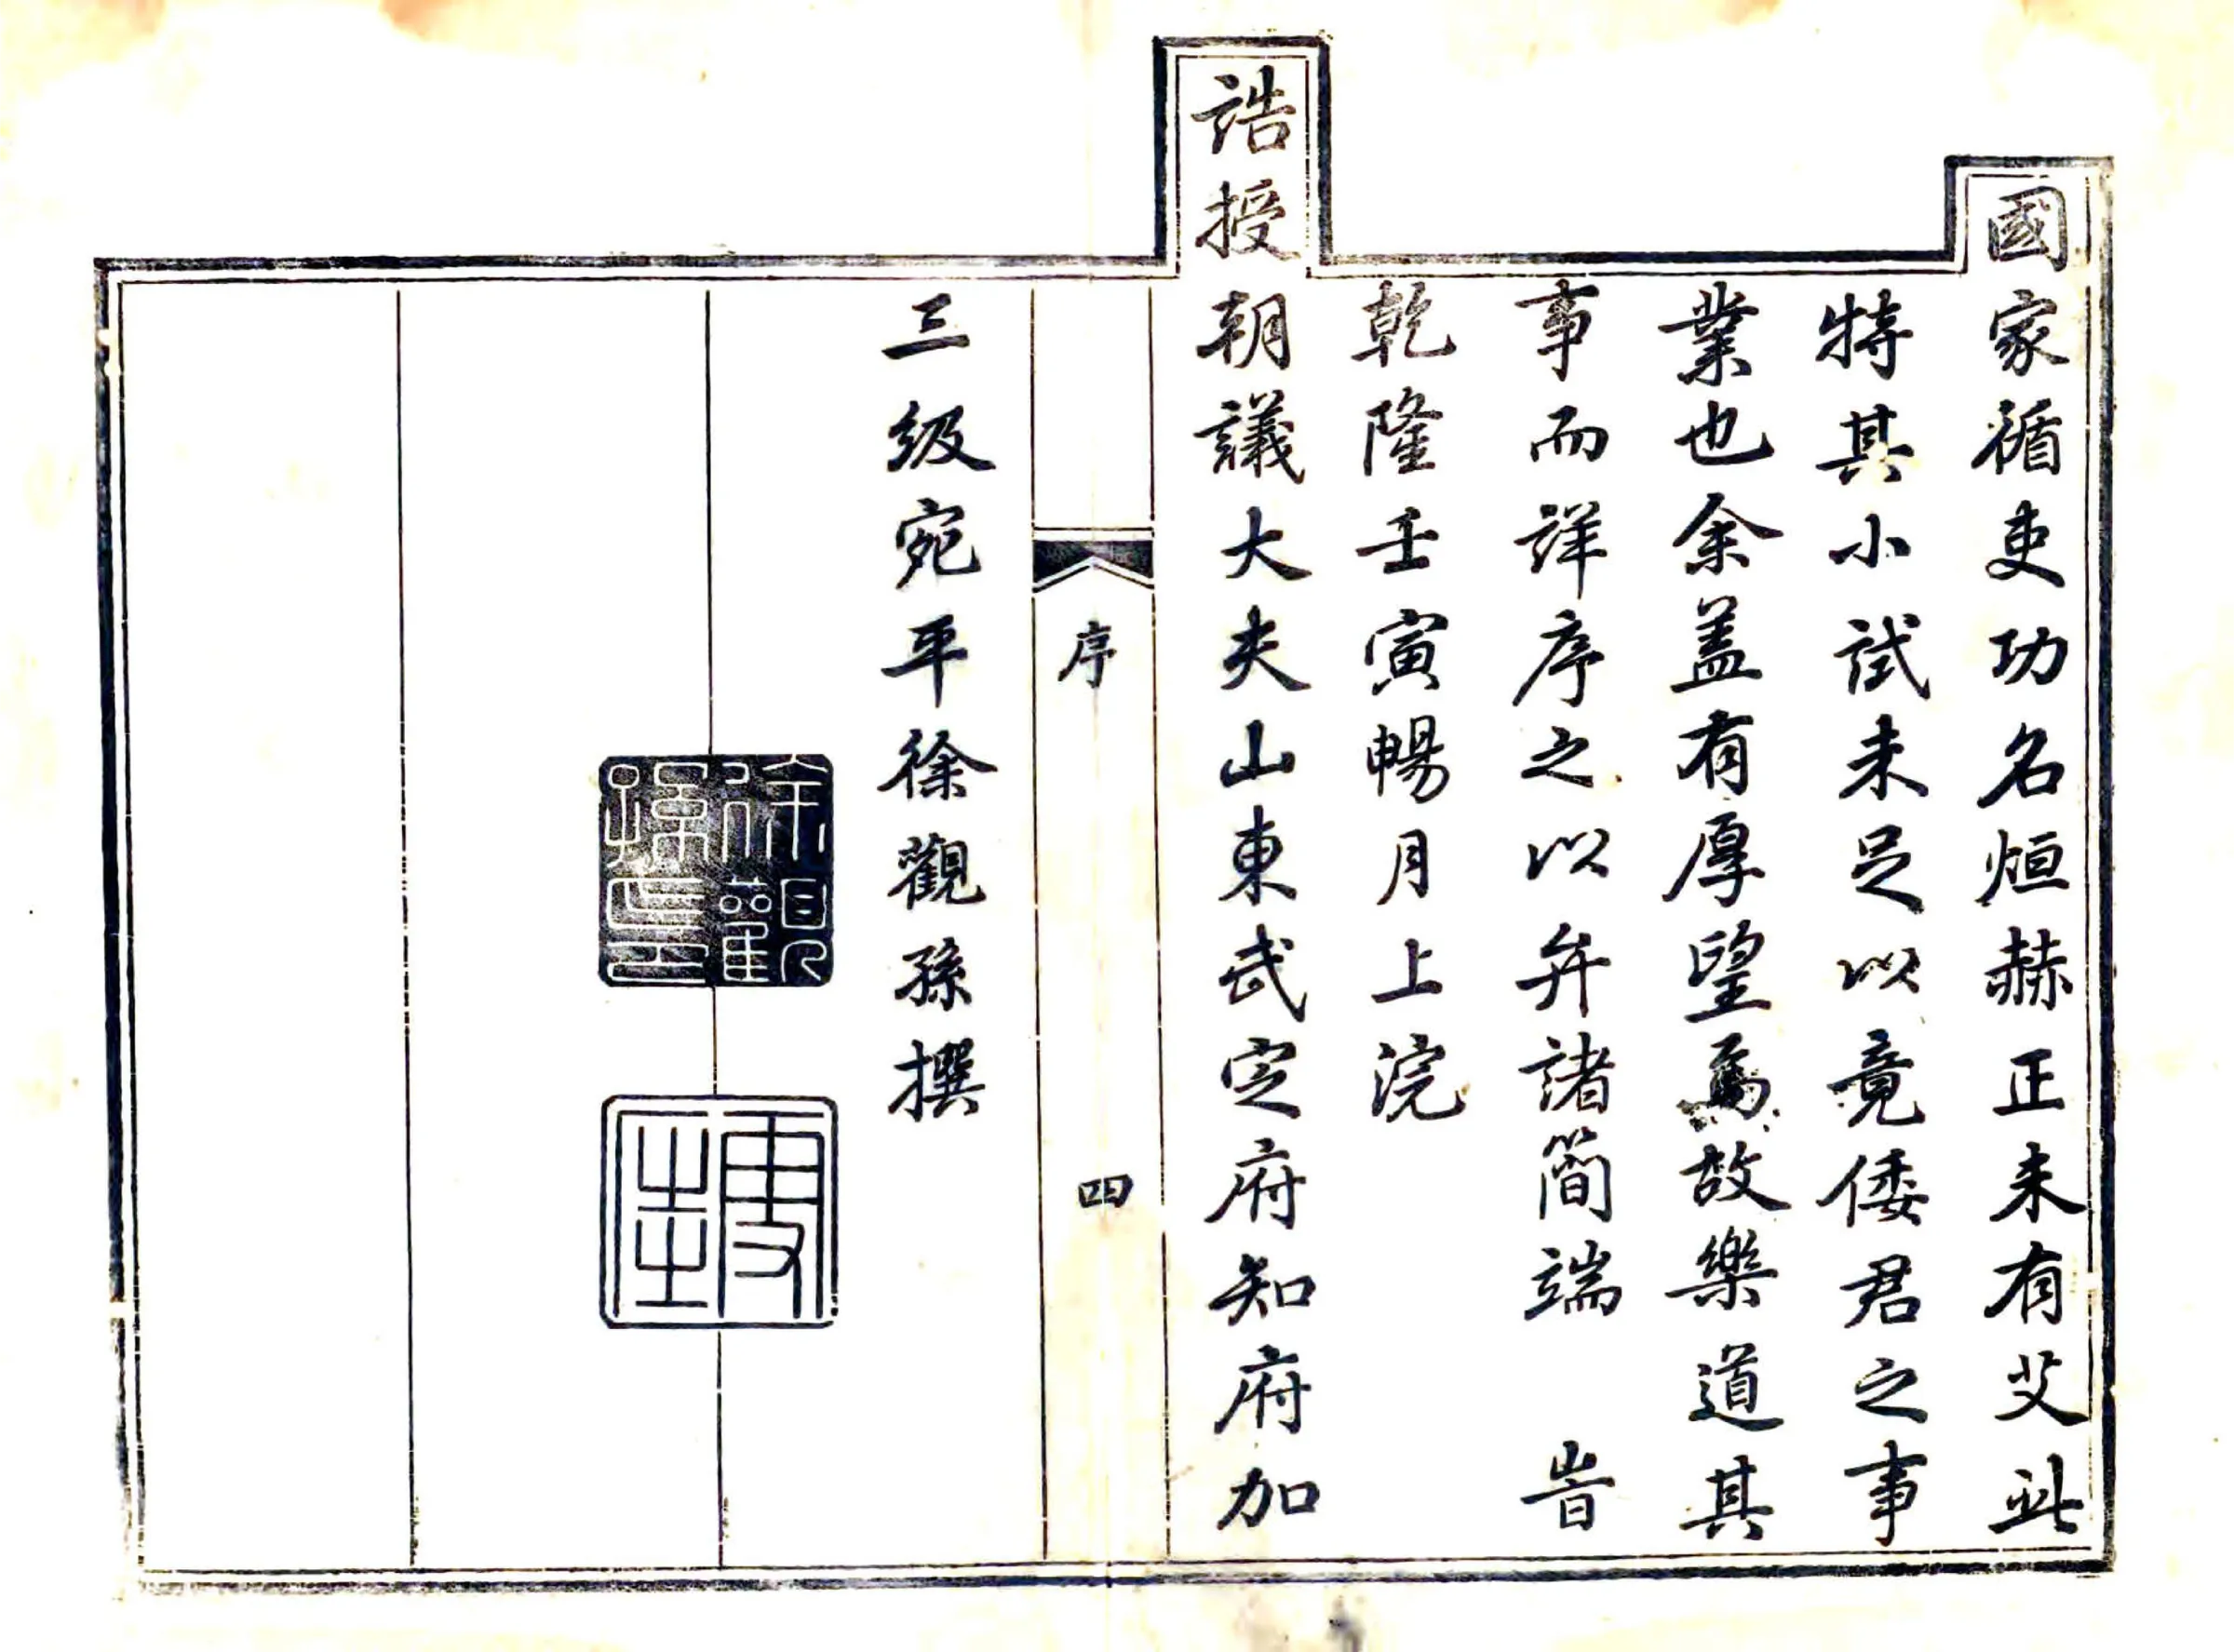 國家循吏功名烜赫正未有艾此
特其小試未足以竟倭君之事
業也余盖有厚望焉故樂道其
事而詳序之以弁諸簡端 旹
乾隆壬寅暢月上浣
誥授朝議大夫山東武定府知府加
序 四
三級宛平徐觀孫撰
徐觀孫印